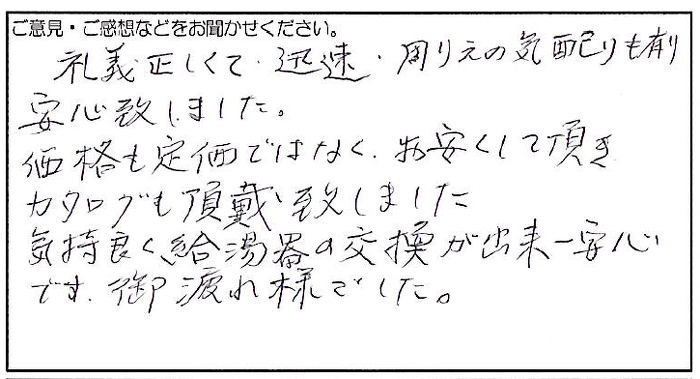 ご意見・ご感想などをお聞かせください。
礼義正しくて・迅速・周りえの気配りも有り
安心致しました。
価格も定価ではなく、お安くして頂き
カタログも頂戴致しました
気持良く給湯器の交換が出来一安心
です、御疲れ様でした。